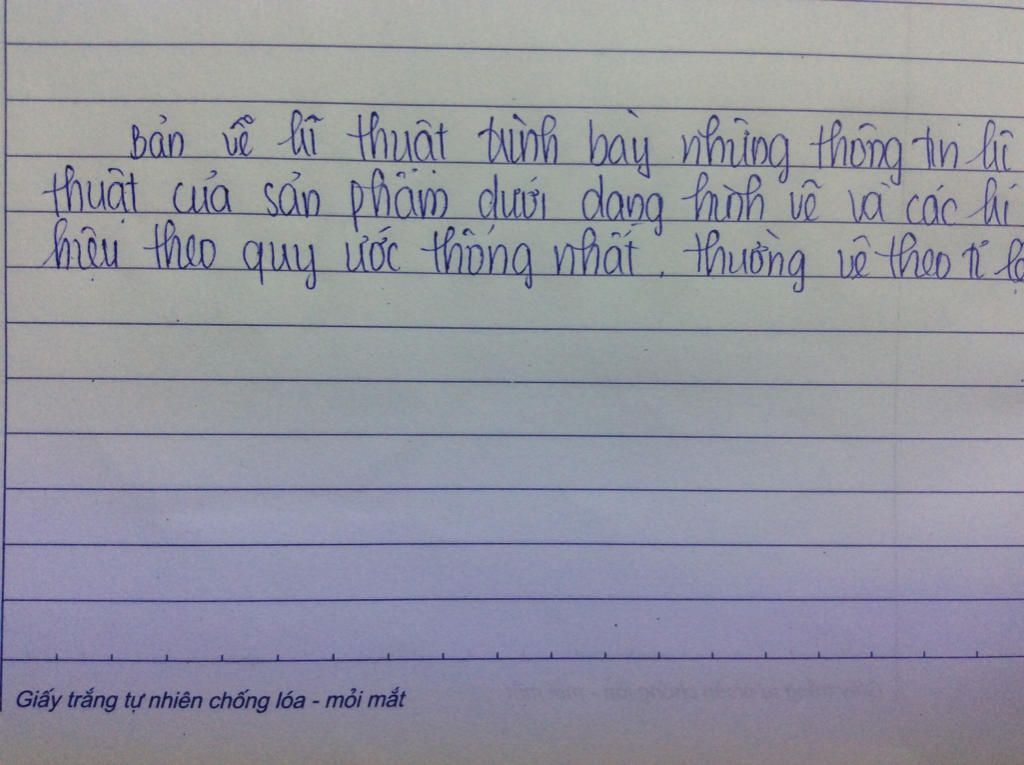 Bản vẽ kĩ thuật trình bày những thông tin kĩ
thuật của sản phẩm dưới dạng hình vẽ và các kí
hiệu theo quy ước thống nhất, thường vẽ theo tỉ lệ
Giấy trắng tự nhiên chống lóa - mỏi mắt